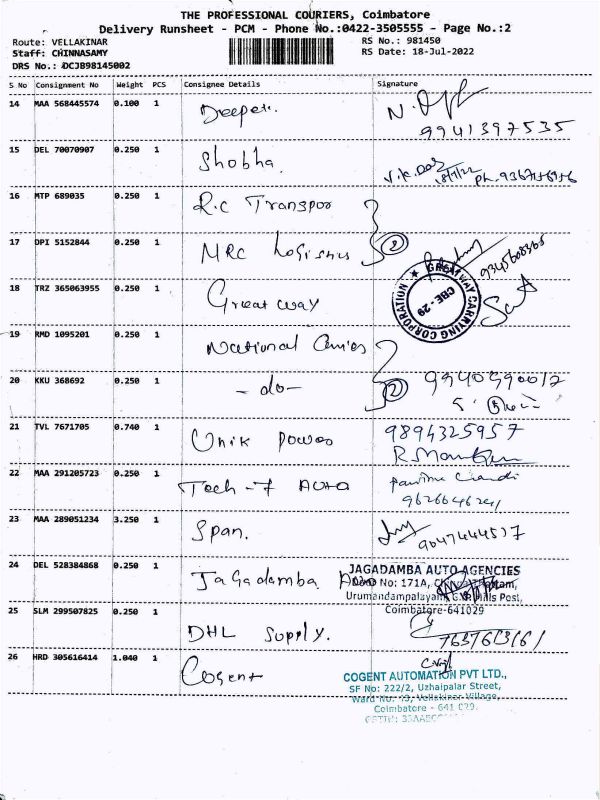 THE PROFESSIONAL COURIERS, Coimbatore
Delivery Runsheet - PCM - Phone No.:0422-3505555 - Page No.:2
Route: VELLAKINAR RS No.: 981450
Staff: CHINNASAMY RS Date: 18-Jul-2022
DRS No.: DCJB98145002
S No Consignment No Weight PCS Consignee Details Signature
14 MAA 568445574 0.100 1 Deepak.
9941397535
15 DEL 70070907 0.250 1 Shobha.
18/7/22
16 MTP 689035 0.250 1 R.C Transpor
17 DPI 5152844 0.250 1 MRC Logistics 2
9345608365
18 TRZ 365063955 0.250 1 Great way
GREATWAY CARRYING CORPORATION
CBE - 29
19 RMD 1095201 0.250 1 National Carries
20 KKU 368692 0.250 1 - do - 2
21 TVL 7671705 0.740 1 Unik Power 9894325957
22 MAA 291205723 0.250 1 Tech-7 Auto
23 MAA 289051234 3.250 1 Span.
24 DEL 528384868 0.250 1 Jagadamba Auto
JAGADAMBA AUTO AGENCIES
No: 171A,
Urumandampalayam, G.N. Mills Post,
Coimbatore-641029
25 SLM 299507825 0.250 1 DHL Supply.
26 HRD 305616414 1.040 1 Cogent
COGENT AUTOMATION PVT LTD.,
SF No: 222/2, Uzhaipalar Street,
Ward No: 13, Vellakinar Village,
Coimbatore - 641 029.